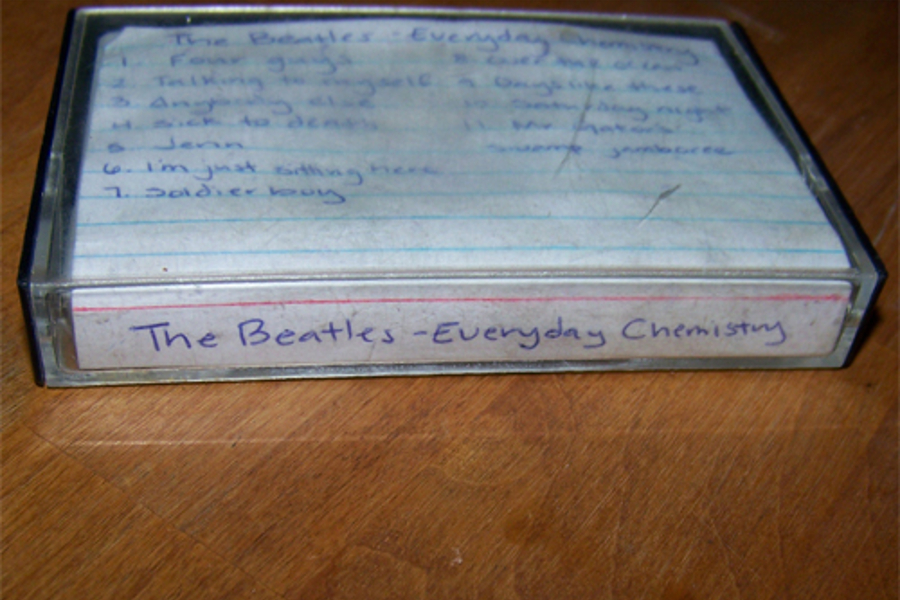 The Beatles - Everyday Chemistry
1. Four guys
2. Talking to myself
3. Anybody else
4. Sick to death
5 Jenn
6. I'm just sitting here
7. Soldier boy
8. Over the Ocean
9 Days like these
10 Saturday night
11 Mr Gator's
swamp jamboree
The Beatles - Everyday Chemistry